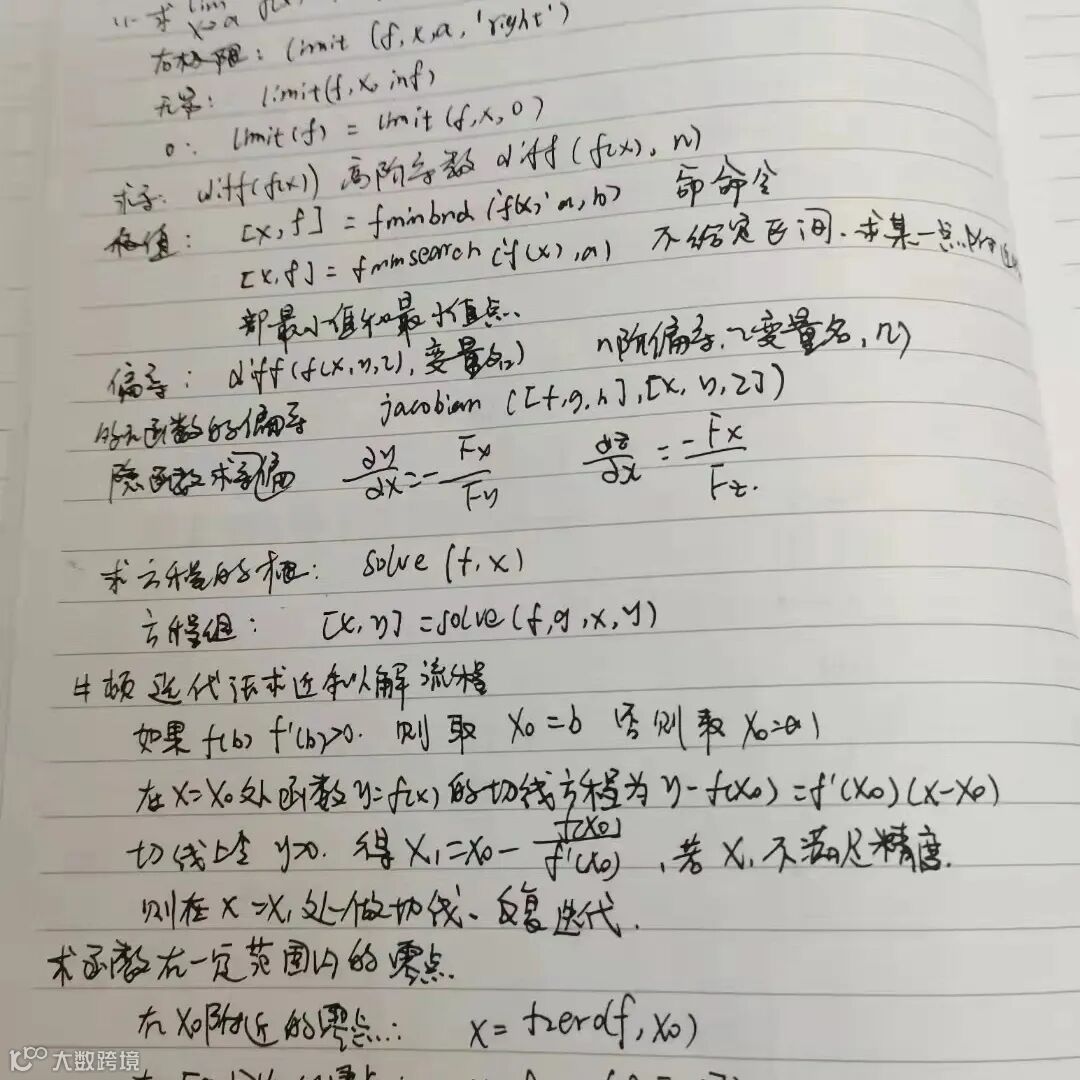 求 lim x→a
右极限: limit (f, x, a, 'right')
无穷: limit(f, x, inf)
0: limit(f) = limit (f, x, 0)
求导: diff(f(x)) 高阶导数 diff (f(x), n)
极值: [x, f] = fminbnd ('f(x)', a, b) 命命令
[x, f] = fminsearch ('f(x)', a) 不给定区间. 求某一点附近
部最小值和最小值点.
偏导: diff(f(x, y, z), 变量名) n阶偏导, 变量名, n)
的元函数的偏导 jacobian ([f, g, h], [x, y, z])
隐函数求导偏 dy/dx = - Fx/Fy dz/dx = -Fx/Fz.
求方程的根: solve (f, x)
方程组: [x, y] = solve (f, g, x, y)
牛顿迭代法求近似解流程
如果 f(b) f'(b)>0. 则取 X0 = b 否则取 X0 = a
在 X=X0 处函数 y=f(x) 的切线方程为 y-f(X0) = f'(X0) (x-X0)
切线上令 y=0. 得 X1 = X0 - f(X0)/f'(X0), 若 X1 不满足精度.
则在 X=X1 处做切线、反复迭代.
求函数在一定范围内的零点.
在 X0 附近的零点: x = fzero(f, X0)
大数跨境